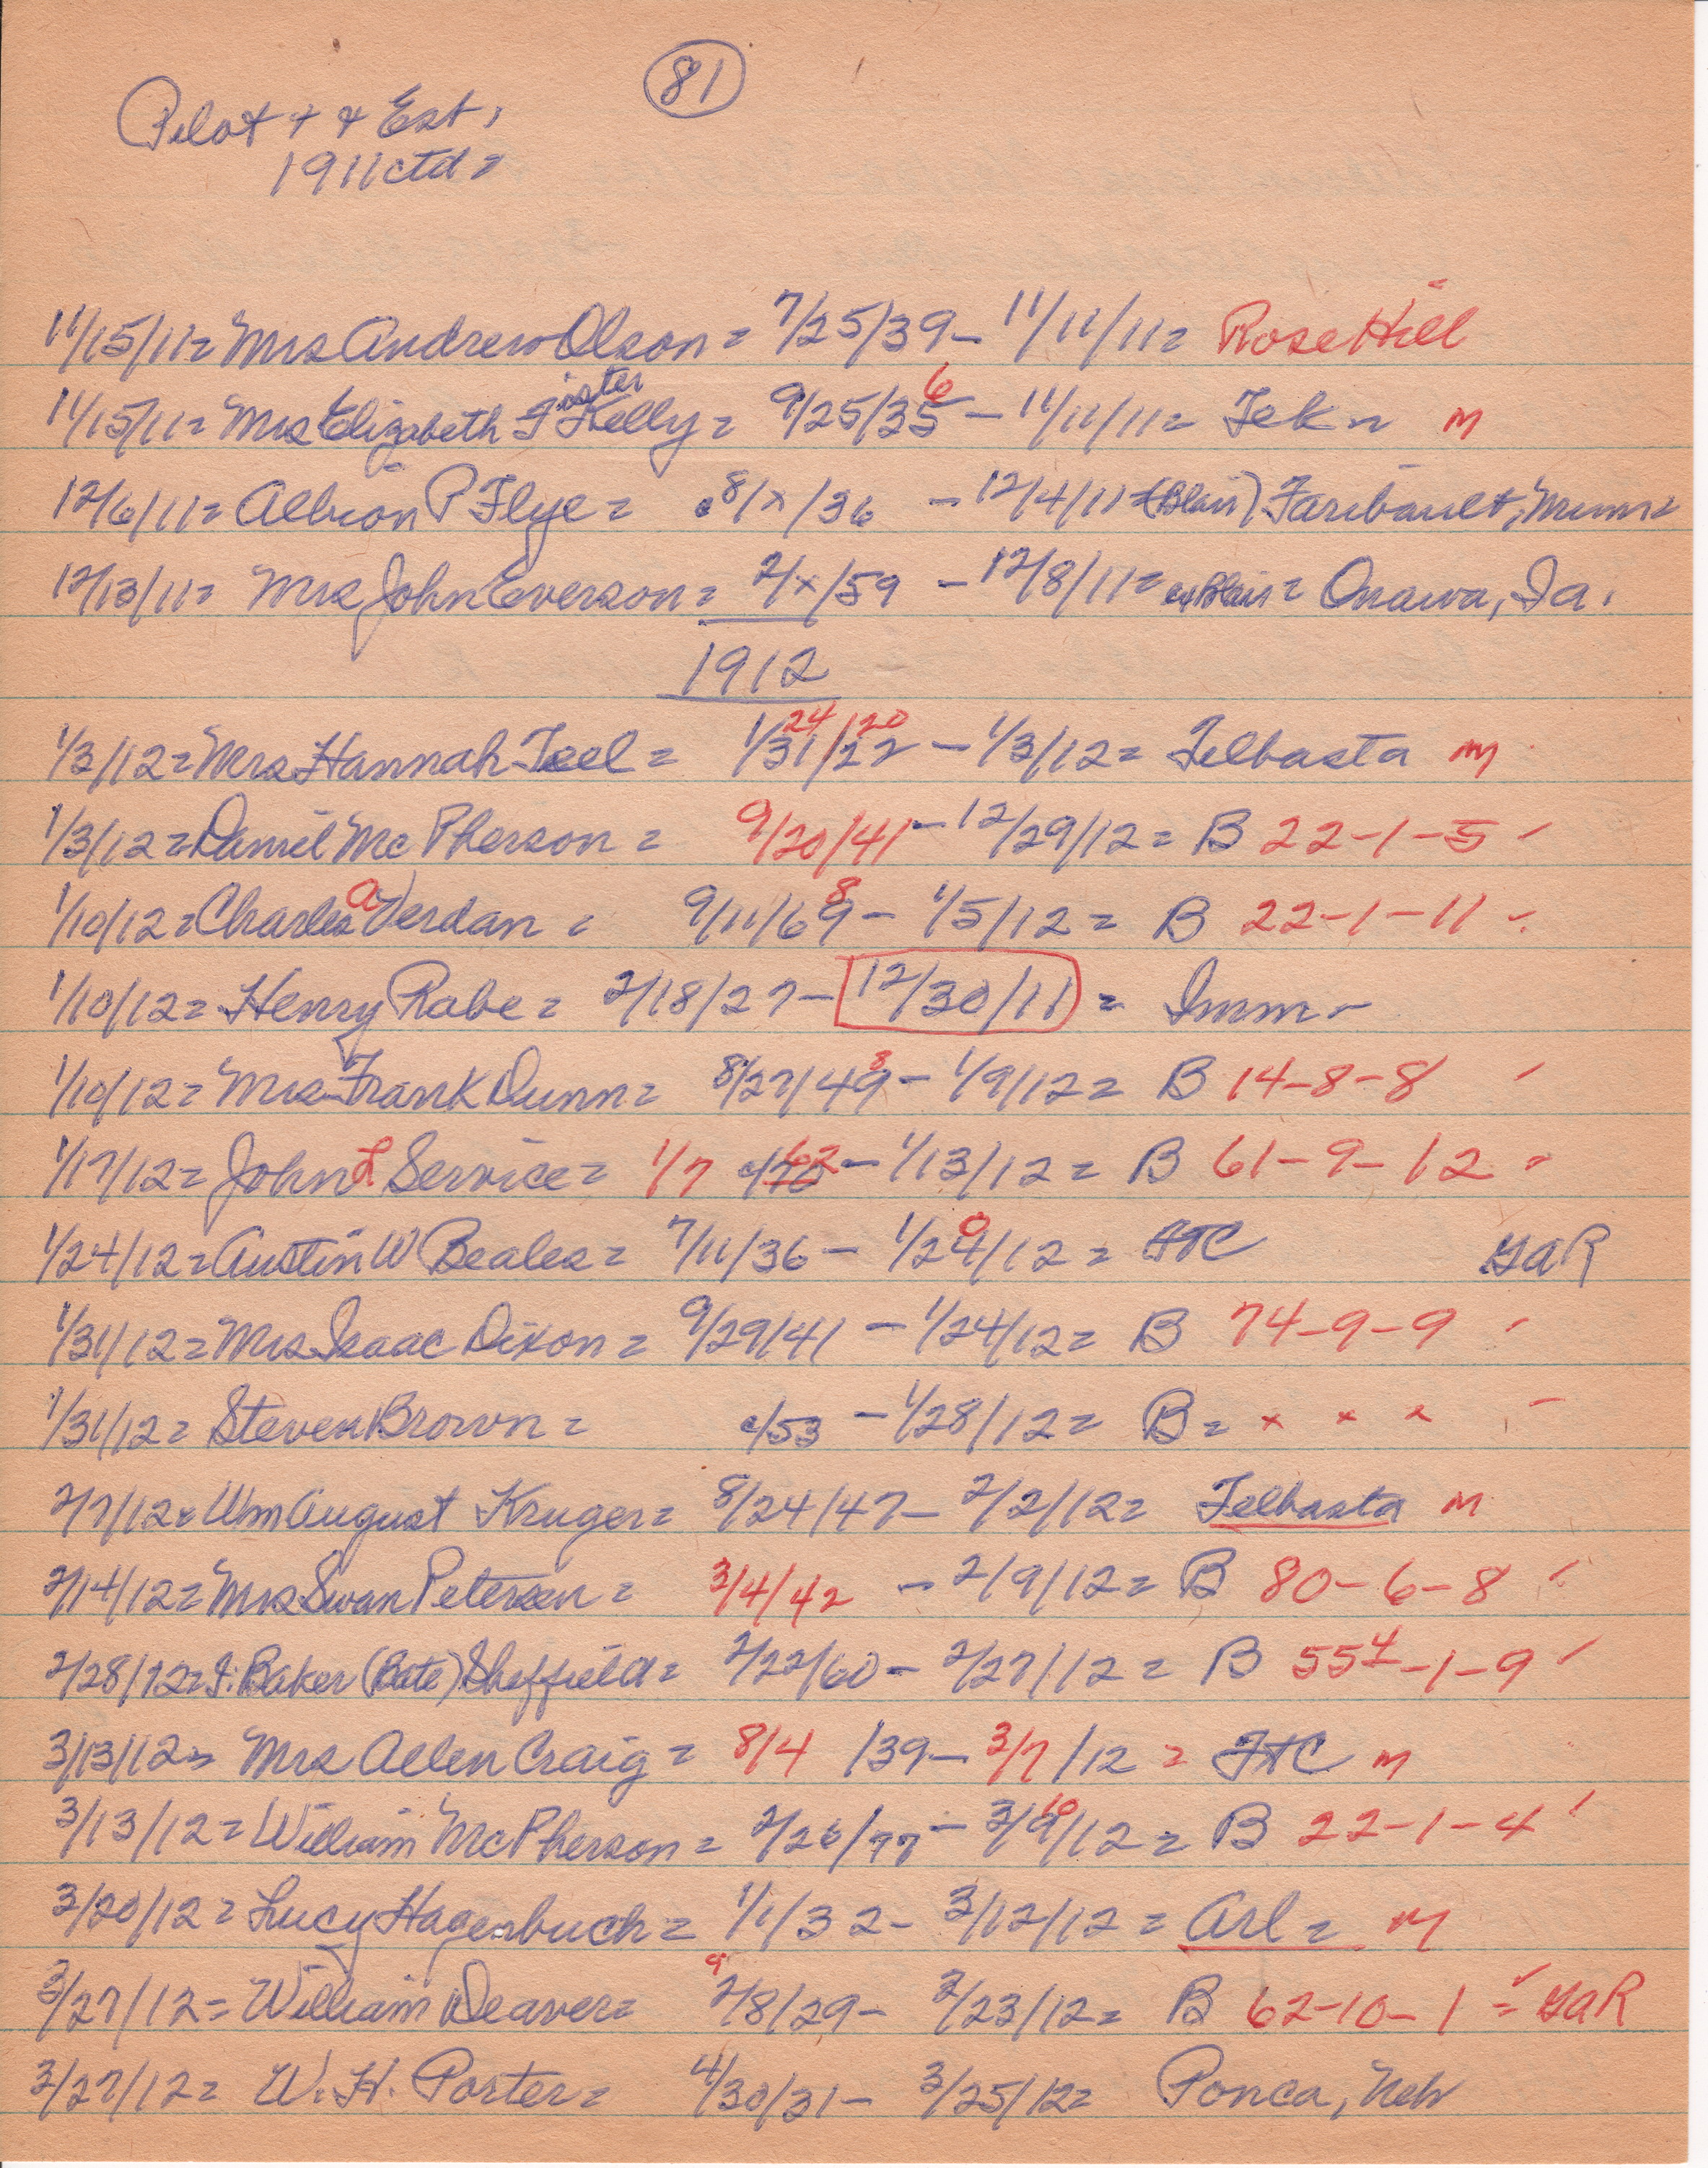 81
Pilot + + Est,
1911 ctd =
11/15/11 = Mrs Andrew Olson = 7/25/39 - 11/11/11 = Rose Hill
ister 6
11/15/11 = Mrs Elizabeth F Kelly = 9/25/35 - 11/11/11 = Tek = m
12/6/11 = Albion P Flye = c 8/x/36 - 12/4/11 = (Blair) Faribault, Minn =
12/13/11 = Mrs John Everson = 2/x/59 - 12/8/11 = ex Blair = Onawa, Ia.
1912
24/20
1/3/12 = Mrs Hannah Teel = 1/31/22 - 1/3/12 = Telbasta m
1/3/12 = Daniel McPherson = 9/20/41 - 12/29/12 = B 22-1-5 ✓
a 8
1/10/12 = Charles Verdan = 9/11/69 - 1/5/12 = B 22-1-11 ✓
1/10/12 = Henry Rabe = 2/18/27 - 12/30/11 = Imm -
8
1/10/12 = Mrs Frank Dunn = 8/27/49 - 1/9/12 = B 14-8-8 ✓
62
1/17/12 = John L Service = 1/7 c/70 - 1/13/12 = B 61-9-12 ✓
0
1/24/12 = Austin W Beales = 7/11/36 - 1/24/12 = FTC GAR
1/31/12 = Mrs Isaac Dixon = 9/29/41 - 1/24/12 = B 74-9-9 ✓
1/31/12 = Steven Brown = c/53 - 1/28/12 = B = x x x -
2/7/12 = Wm August Kruger = 8/24/47 - 2/2/12 = Telbasta m
2/14/12 = Mrs Swan Petersen = 3/4/42 - 2/9/12 = B 80-6-8 ✓
4
2/28/12 = I. Baker (Bate) Sheffield = 2/22/60 - 2/27/12 = B 55-1-9 ✓
3/13/12 = Mrs Allen Craig = 8/4 /39 - 3/7 /12 = FTC m
10
3/13/12 = William McPherson = 2/26/77 - 3/9/12 = B 22-1-4 ✓
3/20/12 = Lucy Hagenbuch = 1/1/32 - 3/12/12 = Arl = m
9
3/27/12 = William Deaver = 2/8/29 - 3/23/12 = B 62-10-1 ✓ = GAR
3/27/12 = W. H. Porter = 4/30/31 - 3/25/12 = Ponca, Neb